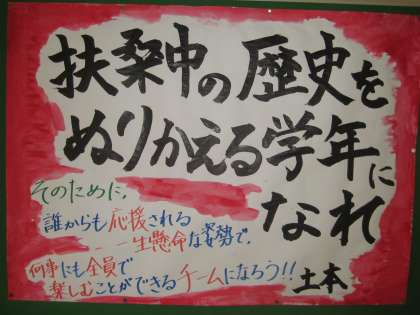 扶桑中の歴史を
ぬりかえる学年に
なれ
そのために、
誰からも応援される
一生懸命な姿勢で、
何事にも全員で
楽しむことができるチームになろう!!
土本